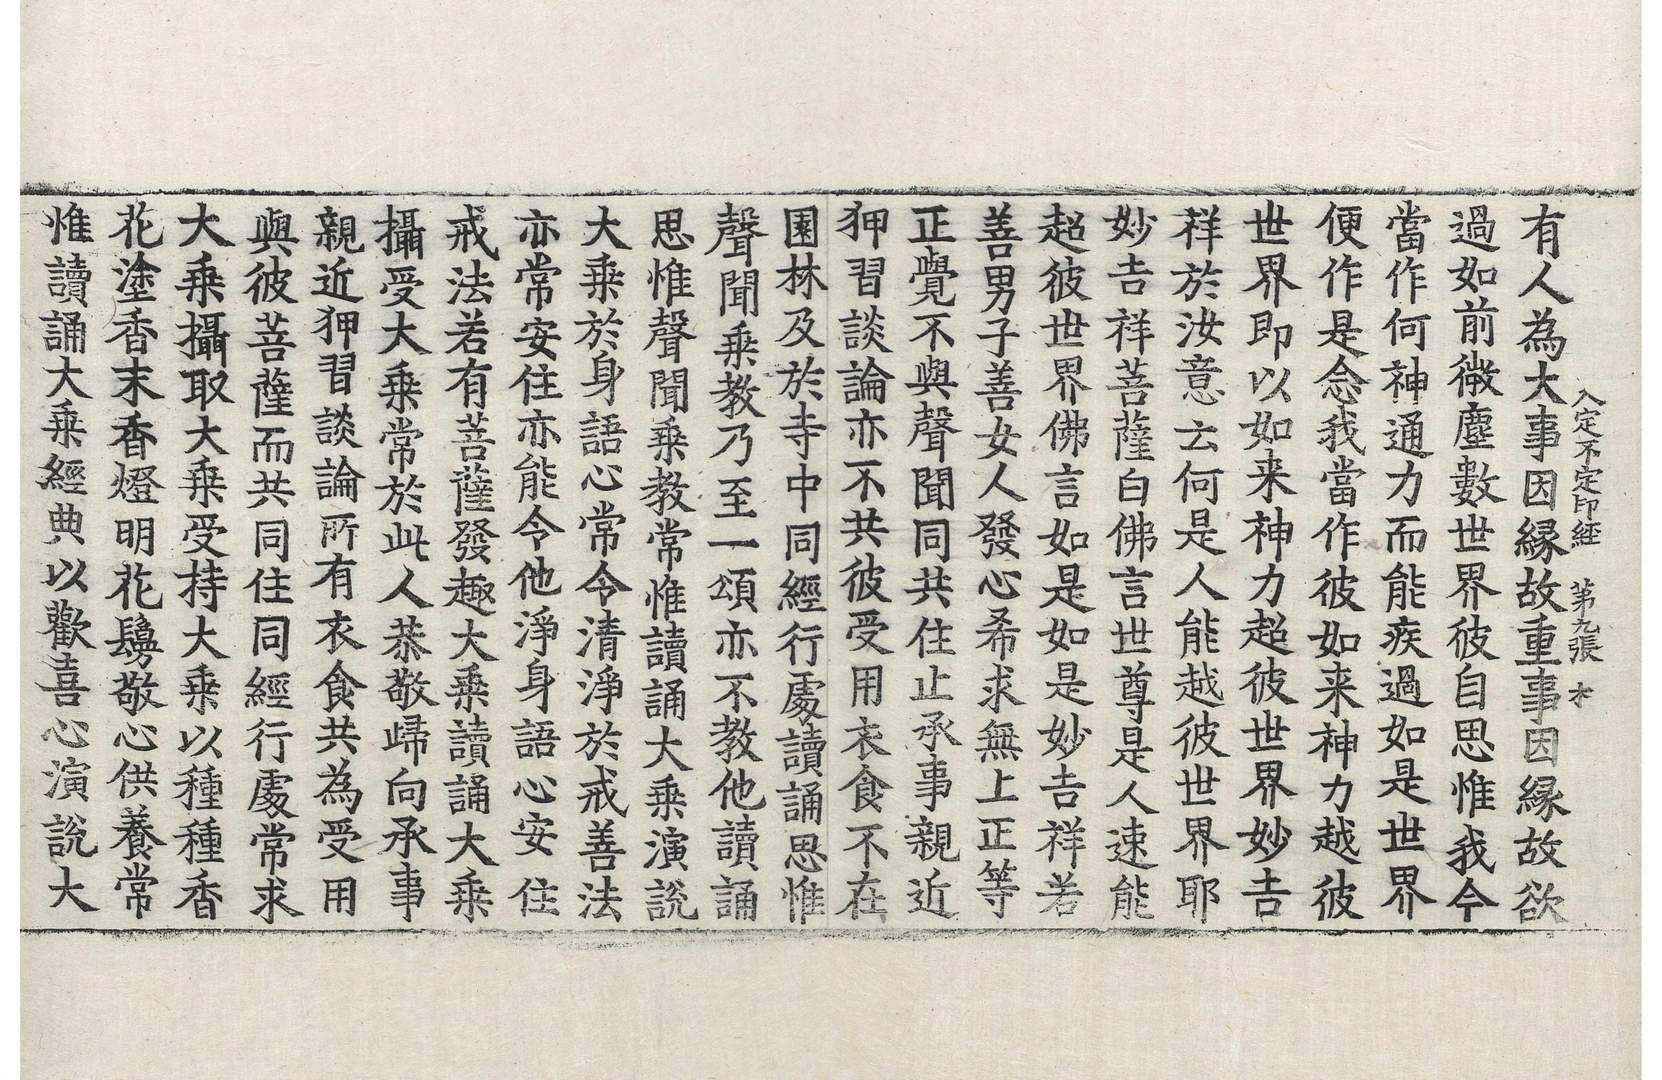 入定不定印経 第九張 木
有人為大事因縁故重事因縁故欲
過如前微塵數世界彼自思惟我今
當作何神通力而能疾過如是世界
便作是念我當作彼如来神力越彼
世界即以如来神力超彼世界妙吉
祥於汝意云何是人能越彼世界耶
妙吉祥菩薩白佛言世尊是人速能
超彼世界佛言如是如是妙吉祥若
善男子善女人發心希求無上正等
正覺不與聲聞同共住止承事親近
狎習談論亦不共彼受用衣食不在
園林及於寺中同經行處讀誦思惟
聲聞乗教乃至一頌亦不教他讀誦
思惟聲聞乗教常惟讀誦大乗演說
大乗於身語心常令清淨於戒善法
亦常安住亦能令他淨身語心安住
戒法若有菩薩發趣大乗讀誦大乗
攝受大乗常於此人恭敬歸向承事
親近狎習談論所有衣食共為受用
與彼菩薩而共同住同經行處常求
大乗攝取大乗受持大乗以種種香
花塗香末香燈明花鬘敬心供養常
惟讀誦大乗經典以歡喜心演說大